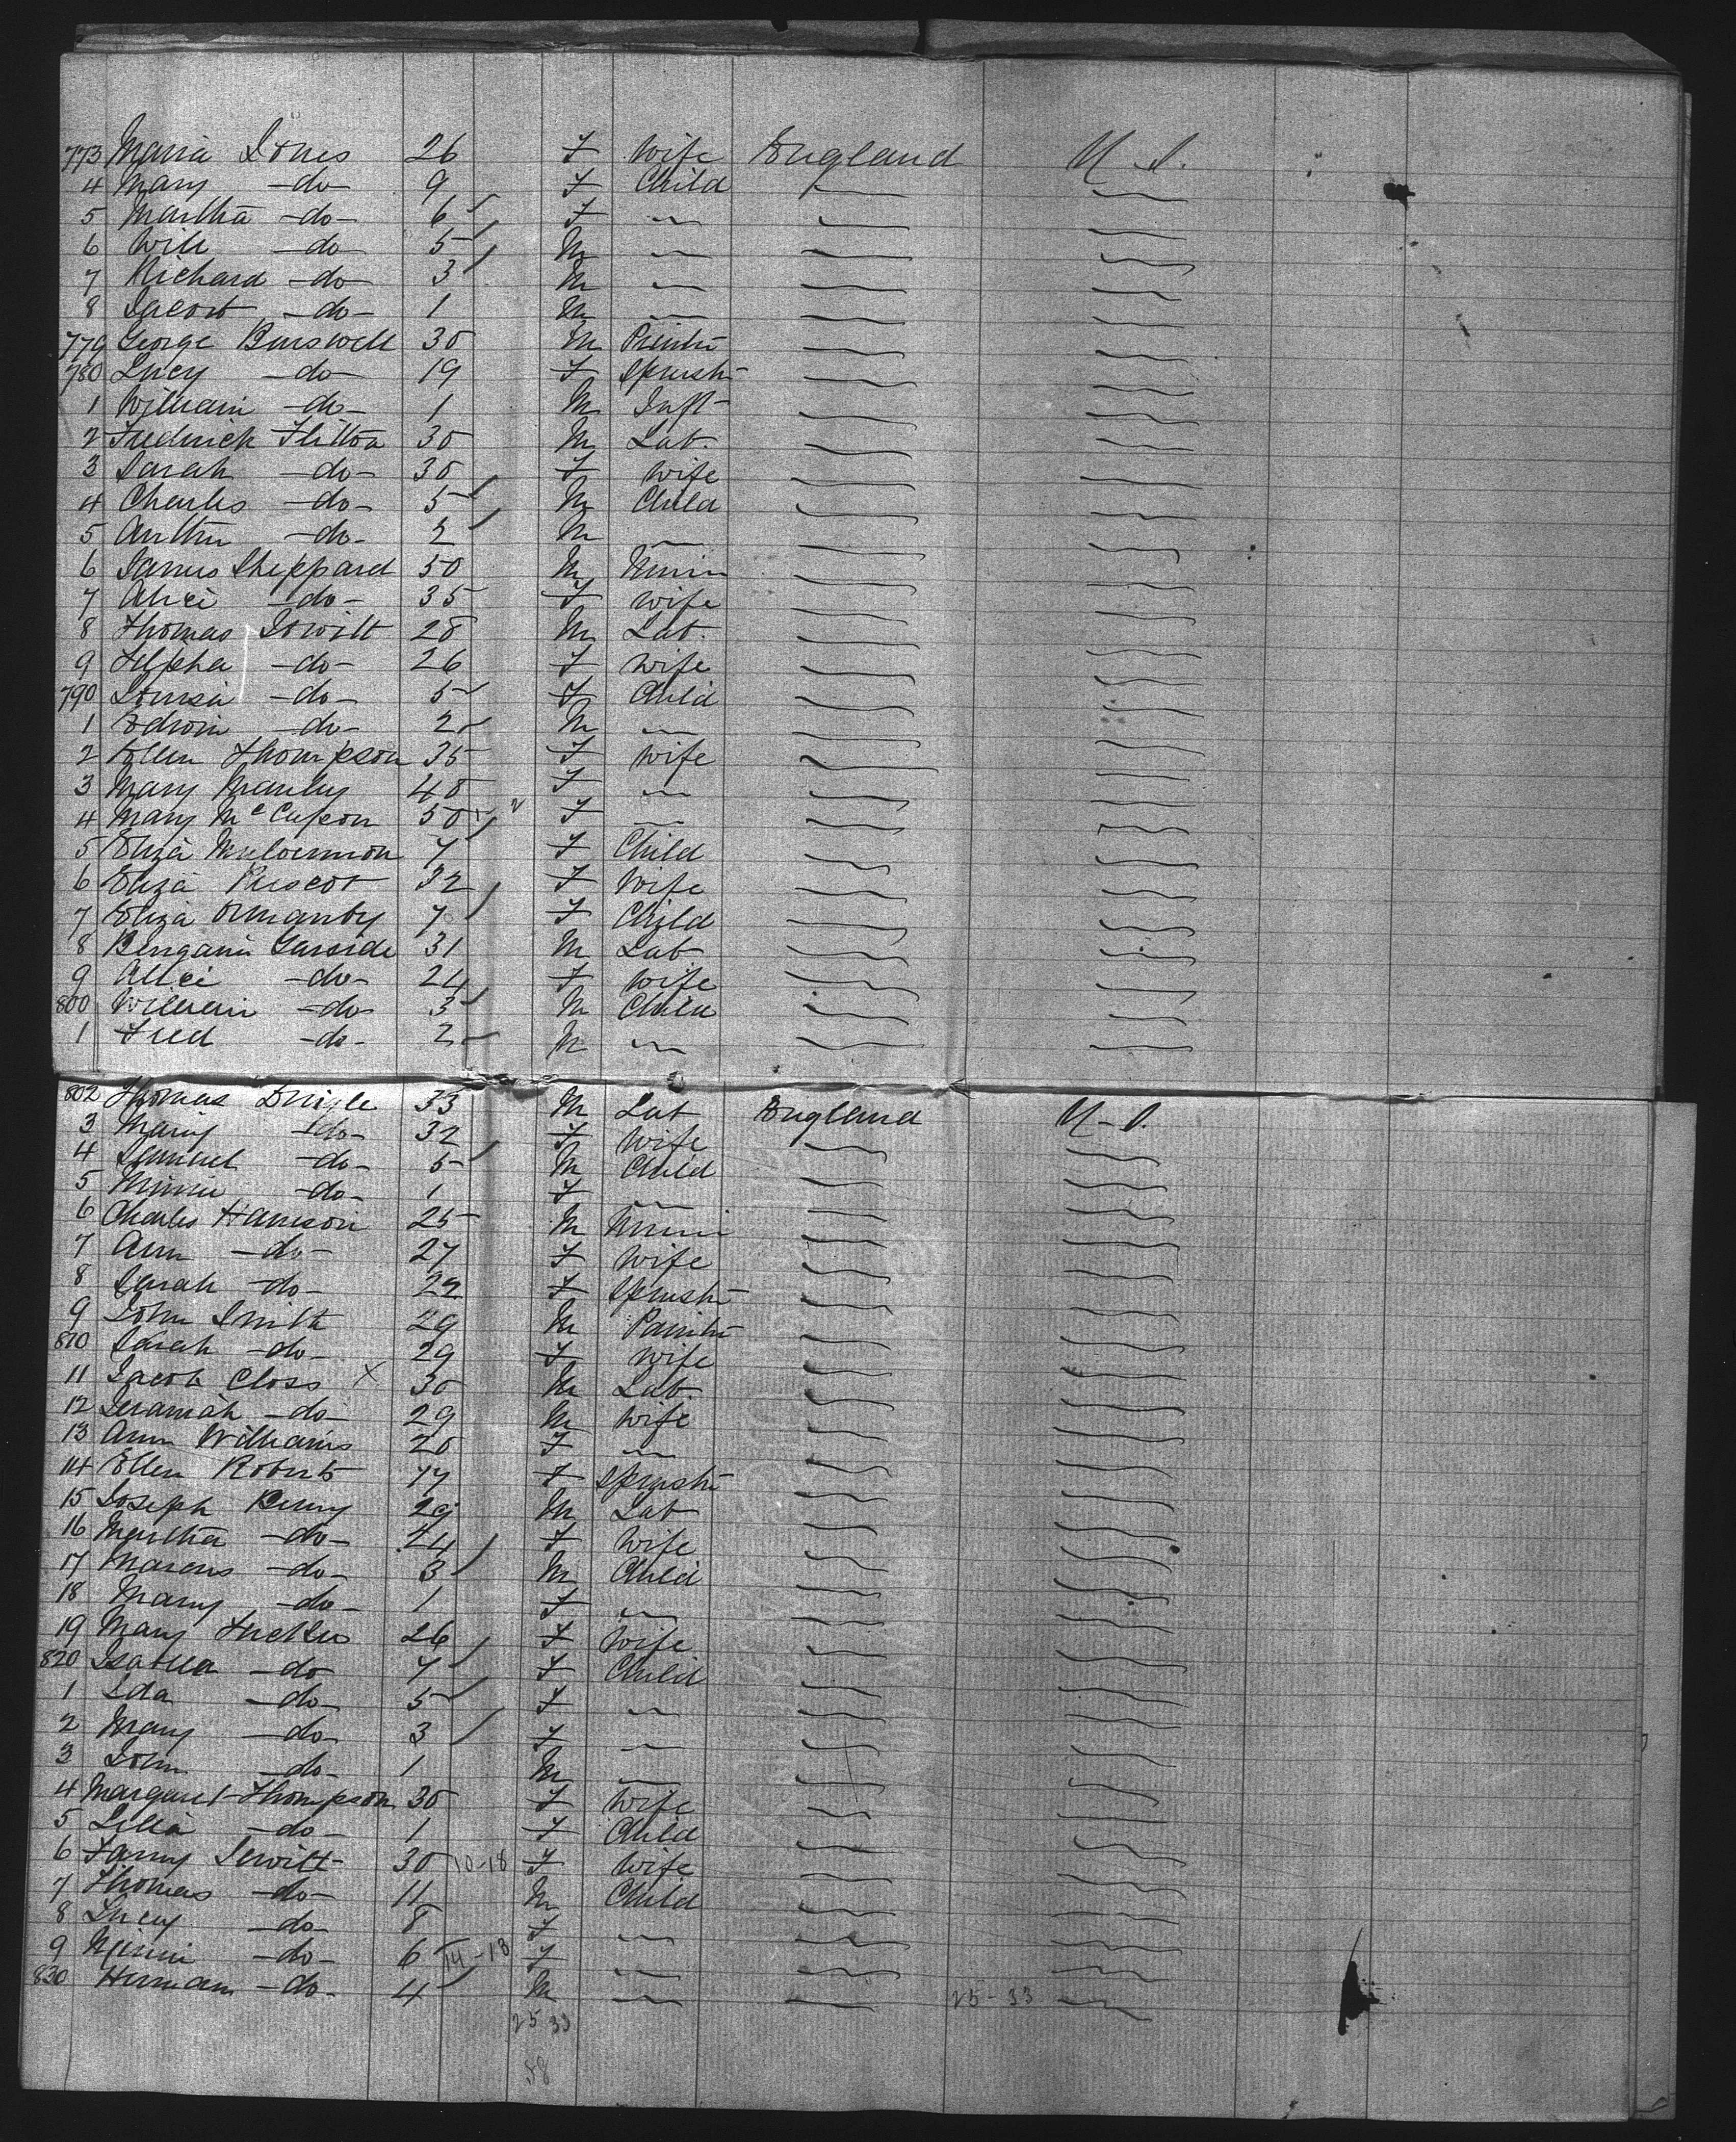 773 Maria Jones 26 F Wife England U.S.
4 Mary -do- 9 F Child
5 Martha -do- 6 F
6 Will -do- 5 M
7 Richard -do- 3 M
8 Jacob -do- 1 M
779 George 30 M
780 Lucy -do- 19 F Spinstr
1 William -do- 1 M Inft
2 Fredrick Flitton 30 M Lab.
3 Sarah -do- 30 F Wife
4 Charles -do- 5 M Child
5 Arthur -do- 2 M
6 James Sheppard 50 M
7 Alice -do- 35 F Wife
8 Thomas 28 M Lab.
9 -do- 26 F Wife
790 Louisa -do- 5 F Child
1 Edwin -do- 2 M
2 Ellen Thompson 35 F Wife
3 Mary Manley 48 F
4 Mary 50 F
5 Eliza 7 F Child
6 Eliza 32 F Wife
7 Eliza 7 F Child
8 Garside 31 M Lab
9 Alice -do- 24 F Wife
800 William -do- 3 M Child
1 Fred -do- 2 M
802 Thomas 33 M Lab England U-S.
3 Mary -do- 32 F Wife
4 Samuel -do- 5 M Child
5 Minnie -do- 1 F
6 Charles Harrison 25 M
7 Ann -do- 27 F Wife
8 Sarah -do- 22 F Spinstr
9 John Smith 29 M
810 Sarah -do- 29 F Wife
11 Jacob Closs X 30 M Lab.
12 -do- 29 M Wife
13 Ann Williams 20 F
14 Ellen Roberts 17 F Spinstr
15 Joseph 29 M Lab
16 Martha -do- 24 F Wife
17 Marcus -do- 3 M Child
18 Mary -do- 1 F
19 Mary 26 F Wife
820 Isabella -do- 7 F Child
1 Ida -do- 5 F
2 Mary -do- 3 F
3 John -do- 1 M
4 Margaret Thompson 30 F Wife
5 -do- 1 F Child
6 Fanny Jewitt 30 10-18 F Wife
7 Thomas -do- 11 M Child
8 Lucy -do- 8 F
9 Minnie -do- 6 14-18 F
830 Herman -do- 4 M 25-33
25 33
58